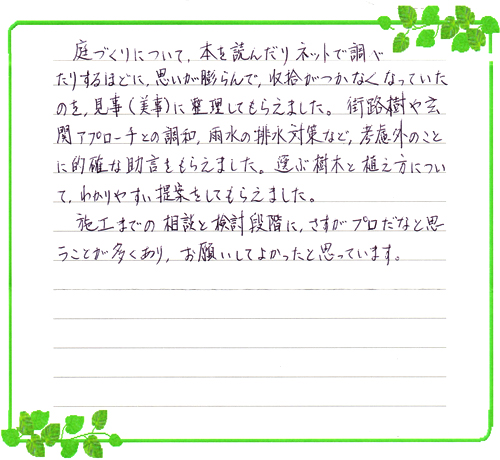 庭づくりについて,本を読んだりネットで調べ
たりするほどに,思いが膨らんで,収拾がつかなくなっていた
のを,見事(美事)に整理してもらえました。街路樹や玄
関アプローチとの調和,雨水の排水対策など,考慮外のこと
に的確な助言をもらえました。選ぶ樹木と植え方につい
て,わかりやすい提案をしてもらえました。
施工までの相談と検討段階に,さすがプロだなと思
うことが多くあり,お願いしてよかったと思っています。